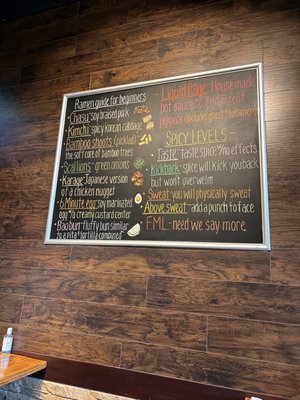 Ramen guide for beginners
Chasu: soy braised pork
Kimchi: spicy korean cabbage
Bamboo shoots (pickled):
the soft core of bamboo trees
Scallions: green onions
Karage: Japanese version
of a chicken nugget
6 Minute egg: soy marinated
egg w/ a creamy custard center
Bao bun: fluffy bun similar
to a pita & tortilla combined
Liquid Rage: House made
hot sauce w/ 7 different
peppers (includes ghost & habanero)
SPICY LEVELS-
Taste: Taste spice w/ no effects
Kickback: spice will kick you back
but won't overwelm
Sweat: you will physically sweat
Above sweat: add a punch to face
FML- need we say more